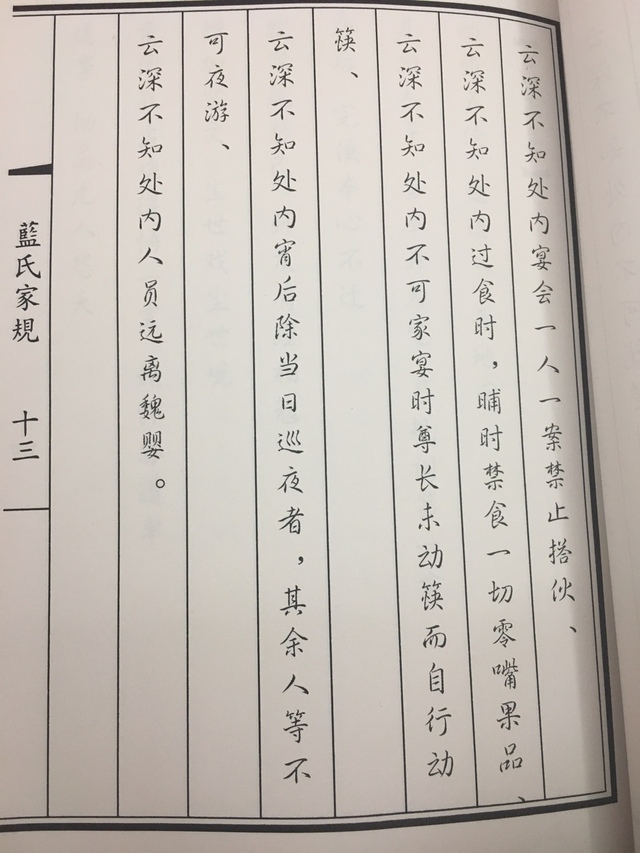 云深不知处内宴会一人一案禁止搭伙、
云深不知处内过食时，晡时禁食一切零嘴果品、
云深不知处内不可家宴时尊长未动筷而自行动
筷、
云深不知处内宵后除当日巡夜者，其余人等不
可夜游、
云深不知处内人员远离魏婴。
藍氏家規 十三